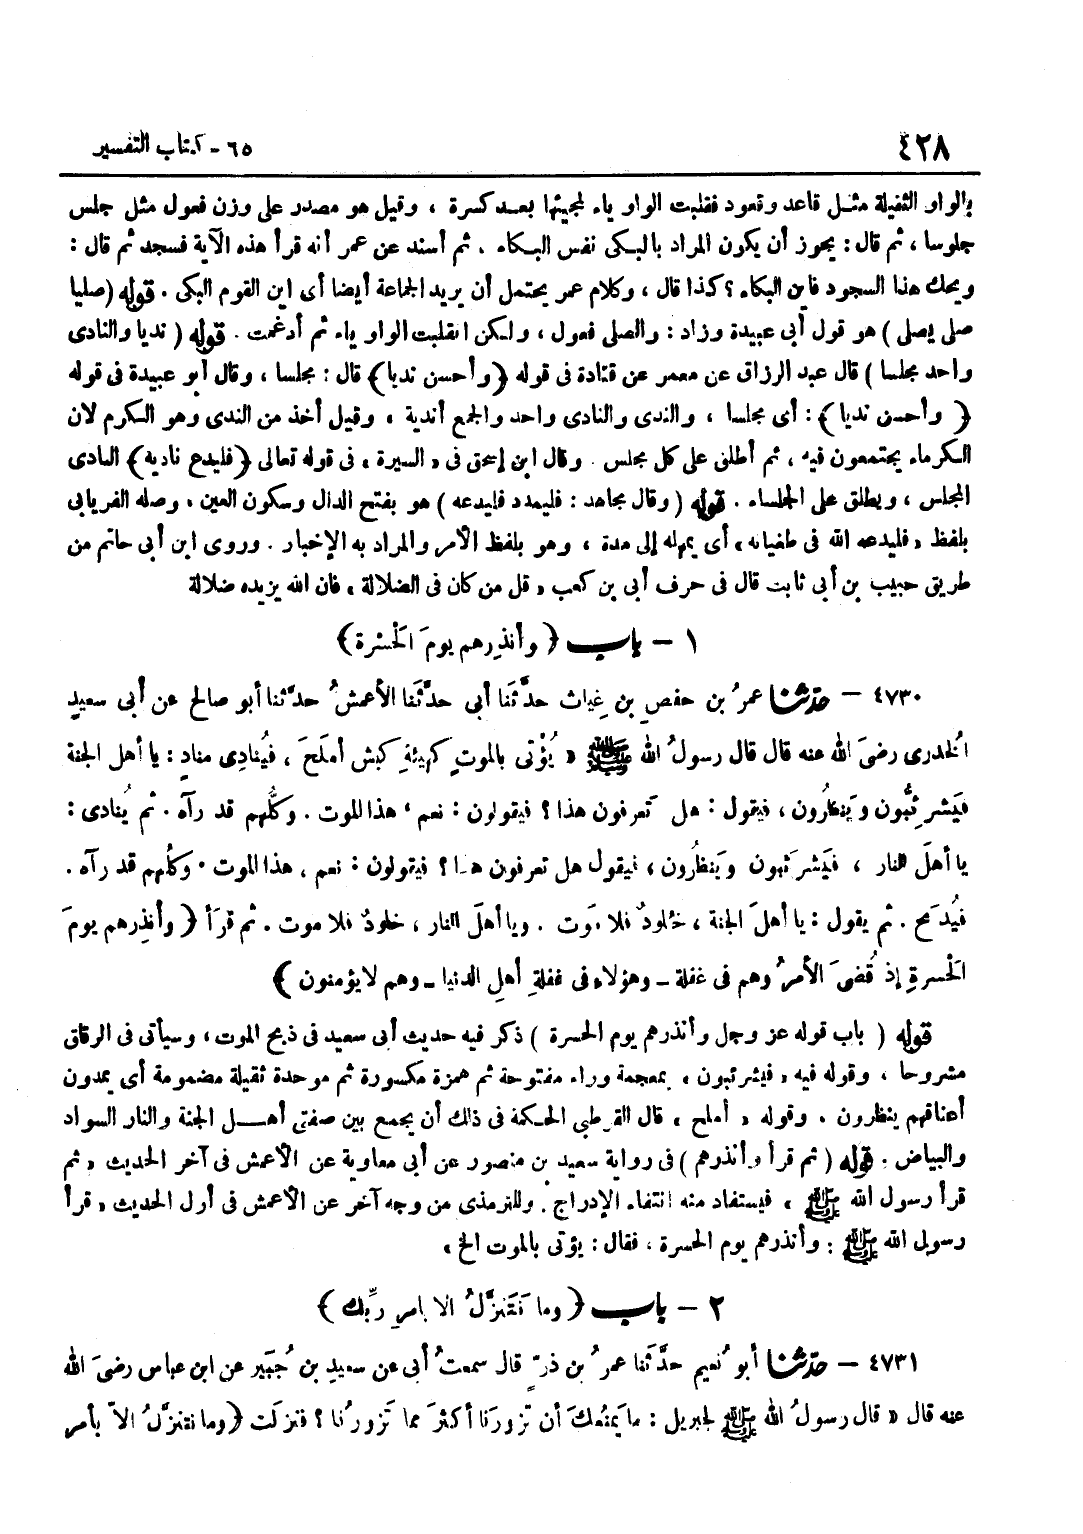 ٤٢٨
٦٥ - كتاب التفسير
بالواو الثقيلة مثـل قاعد وقعود فقلبت الواو ياء لمجيئها بعـد كسرة ، وقيل هو مصدر على وزن فعول مثل جلس
جلوسا ، ثم قال : يجوز أن يكون المراد بالبـكى نفس البـكاء . ثم أسند عن عمر أنه قرأ هذه الآية فسجد ثم قال :
ويحك هذا السجود فأين البكاء ؟ كذا قال ، وكلام عمر يحتمل أن يريد الجماعة أيضا أى اين القوم البكى . قوله ( صليا
صلى يصلى ) هو قول أبى عبيدة وزاد : والصلى فعول ، ولـكن انقلبت الواو ياء ثم أدغمت . قوله ( نديا والنادى
واحد مجلسا ) قال عبد الرزاق عن معمر عن قتادة فى قوله ﴿ وأحسن نديا ﴾ قال : مجلسا ، وقال أبو عبيدة فى قوله
﴿ وأحسن نديا ﴾ : أى مجلسا ، والندى والنادى واحد والجمع أندية ، وقيل أخذ من الندى وهو الـكرم لان
الـكرماء يجتمعون فيه ، ثم أطلق على كل مجلس . وقال ابن إسحق فى « السيرة » فى قوله تعالى ﴿ فليدع ناديه ﴾ النادى
المجلس ، ويطلق على الجلساء . قوله ( وقال مجاهد : فليمدد فليدعه ) هو بفتح الدال وسكون العين ، وصله الفريابى
بلفظ « فليدعه الله فى طغيانه » أى يمهله إلى مدة ، وهو بلفظ الأمر والمراد به الإخبار . وروى ابن أبى حاتم من
طريق حبيب بن أبى ثابت قال فى حرف أبى بن كعب « قل من كان فى الضلالة ، فان الله يزيده ضلالة
١ - باب ﴿ وأنذِرهم يومَ الَحْسْرة ﴾
٤٧٣٠ - حدّثنا عمرُ بن حفصِ بن غِياث حدَّثَنا أبى حدَّثَنا الأعمشُ حدَّثنا أبو صالح عن أبى سعيدٍ
الخدرى رضىَ الله عنه قال قال رسولُ الله ﷺ « يُؤْتى بالموتِ كهيئةِ كبش أملَحَ ، فيُنادِى منادٍ : يا أهل الجنة
فيَشْرَئِبُّون ويَنظُرون ، فيقول : هل تَعرفون هذا ؟ فيقولون : نعم ، هذا الموت . وكلُّهم قد رآه . ثم يُنادى :
يا أهلَ النار ، فيَشرئبون ويَنظُرون ، فيقول هل تعرفون هذا ؟ فيقولون : نعم ، هذا الموت . وكلُهم قد رآه .
فيُذبح . ثم يقول : يا أهلَ الجنة ، خُلودٌ فلا مَوت . ويا أهلَ النار ، خلودٌ فلا موت . ثم قرَأ ﴿ وأنذِرهم يومَ
الَحْسرةِ إذ قُضىَ الأمرُ وهم فى غفلة ـ وهؤلاء فى غفلةِ أهلِ الدنيا ـ وهم لا يؤمنون ﴾
قوله ( باب قوله عز وجل وأنذرهم يوم الحسرة ) ذكر فيه حديث أبى سعيد فى ذبح الموت ، وسيأتى فى الرقاق
مشروحا ، وقوله فيه « فيشرئبون » بمعجمة وراء مفتوحة ثم همزة مكسورة ثم موحدة ثقيلة مضمومة أى يمدون
أعناقهم ينظرون . وقوله « أملح » قال القرطبى الحـكمة فى ذلك أن يجمع بين صفتى أهـل الجنة والنار السواد
والبياض . قوله ( ثم قرأ وأنذرهم ) فى رواية سعيد بن منصور عن أبى معاوية عن الأعمش فى آخر الحديث « ثم
قرأ رسول الله ﷺ » فيستفاد منه انتفاء الإدراج . وللترمذى من وجه آخر عن الأعمش فى أول الحديث « قرأ
رسول الله ﷺ : وأنذرهم يوم الحسرة ، فقال : يؤتى بالموت الخ »
٢ - باب ﴿ وما نَتنزَّلُ الا بامرِ ربِّك ﴾
٤٧٣١ - حدّثنا أبو نُعيم حدَّثنا عمرُ بن ذرّ قال سمعتُ أبى عن سعيدِ بن جُبَير عن ابن عباس رضىَ الله
عنه قال « قال رسولُ الله ﷺ لجبريل : ما يَمنعُكَ أن تزورَنا أكثرَ مما تَزورُنا ؟ فنزلَت ﴿ وما نتنزَّلُ الاّ بأمر